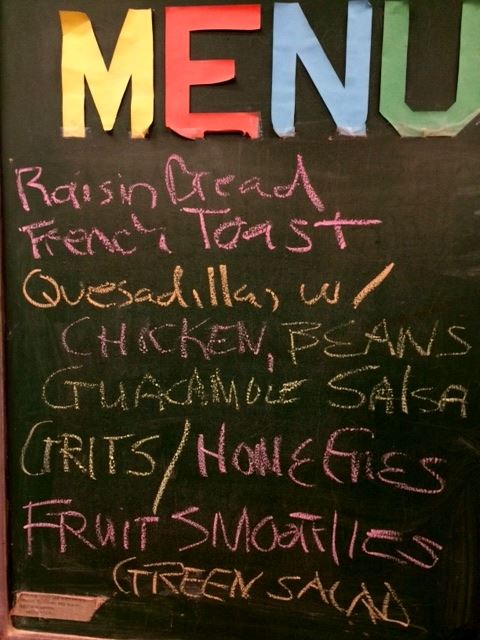 MENU
Raisin Bread
French Toast
Quesadilla, w/
CHICKEN, BEANS
GUACAMOLE Salsa
GRITS/HOMEFRIES
FRUIT SMOOTHIES
GREEN SALAD